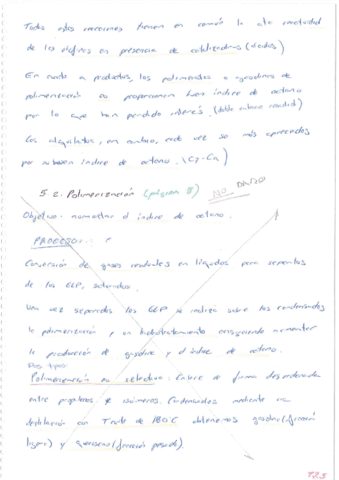 Todas estas reacciones tienen en común la alta reactividad
de las olefinas en presencia de catalizadores (ácidos)
En cuanto a productos, los polimerizados o gasolinas de
polimerización no proporcionan buen índice de octano
por lo que han perdido interés. (doble enlace residual)
Los alquilatos, en cambio, cada vez son más apreciados
por su buen índice de octano. (C7-C9)
5.2. Polimerización (página 8) NO DADO
Objetivo: aumentar el índice de octano.
PROCESO:
Conversión de gases residuales en líquidos para separarlos
de los GLP, saturados.
Una vez separados los GLP se realiza sobre los condensados
la polimerización y un hidrotratamiento consiguiendo aumentar
la producción de gasolina y el índice de octano.
Dos tipos:
Polimerización no selectiva. Ocurre de forma desordenada
entre propileno e isómeros. Condensados mediante
destilación con obtenemos gasolina (fracción
ligera) y queroseno (fracción pesada).